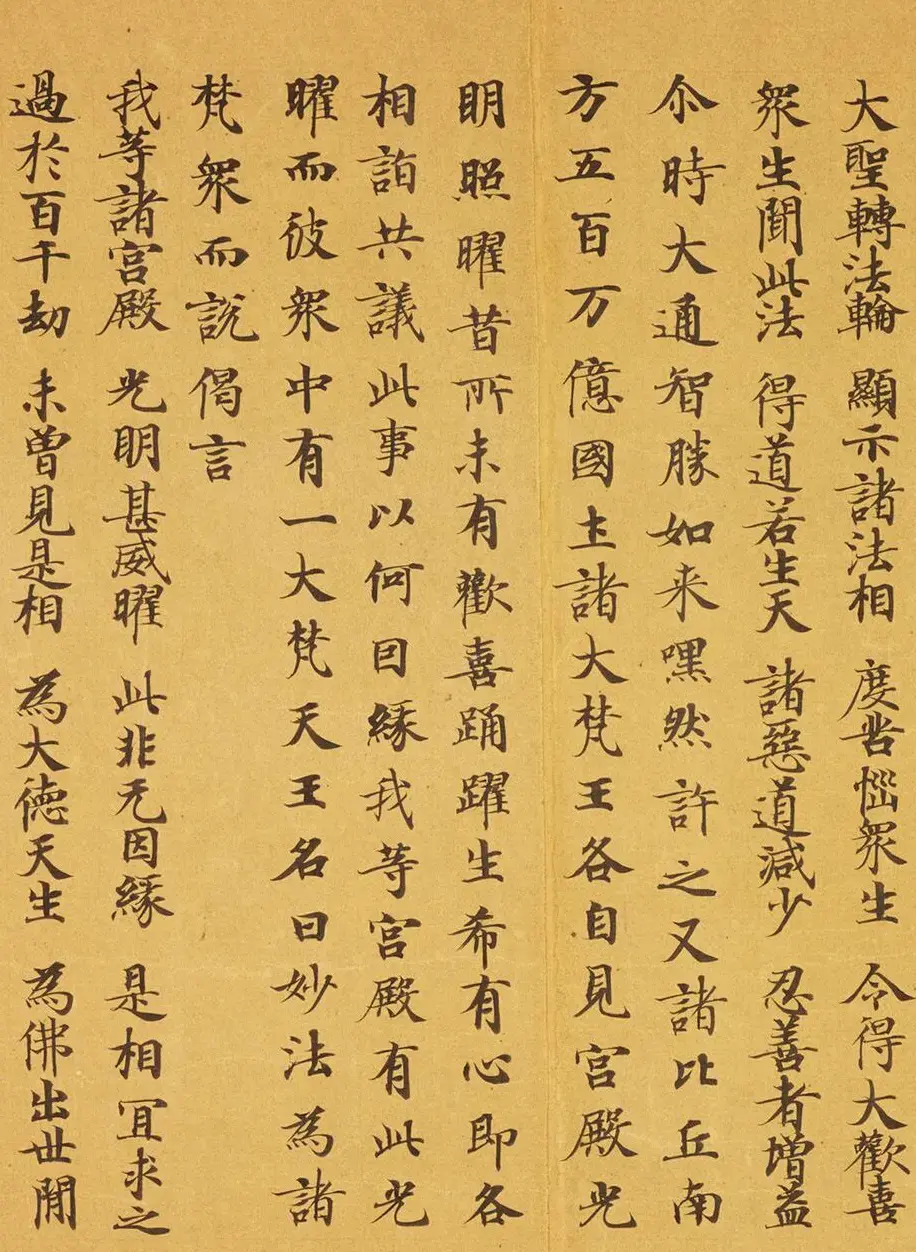 大聖轉法輪 顯示諸法相 度苦惱眾生 令得大歡喜
眾生聞此法 得道若生天 諸惡道減少 忍善者增益
尒時大通智勝如来嘿然許之又諸比丘南
方五百万億國土諸大梵王各自見宫殿光
明照曜昔所未有歡喜踊躍生希有心即各
相詣共議此事以何因緣我等宫殿有此光
曜而彼眾中有一大梵天王名曰妙法為諸
梵眾而說偈言
我等諸宫殿 光明甚威曜 此非无因緣 是相冝求之
過於百千劫 未曾見是相 為大德天生 為佛出世間